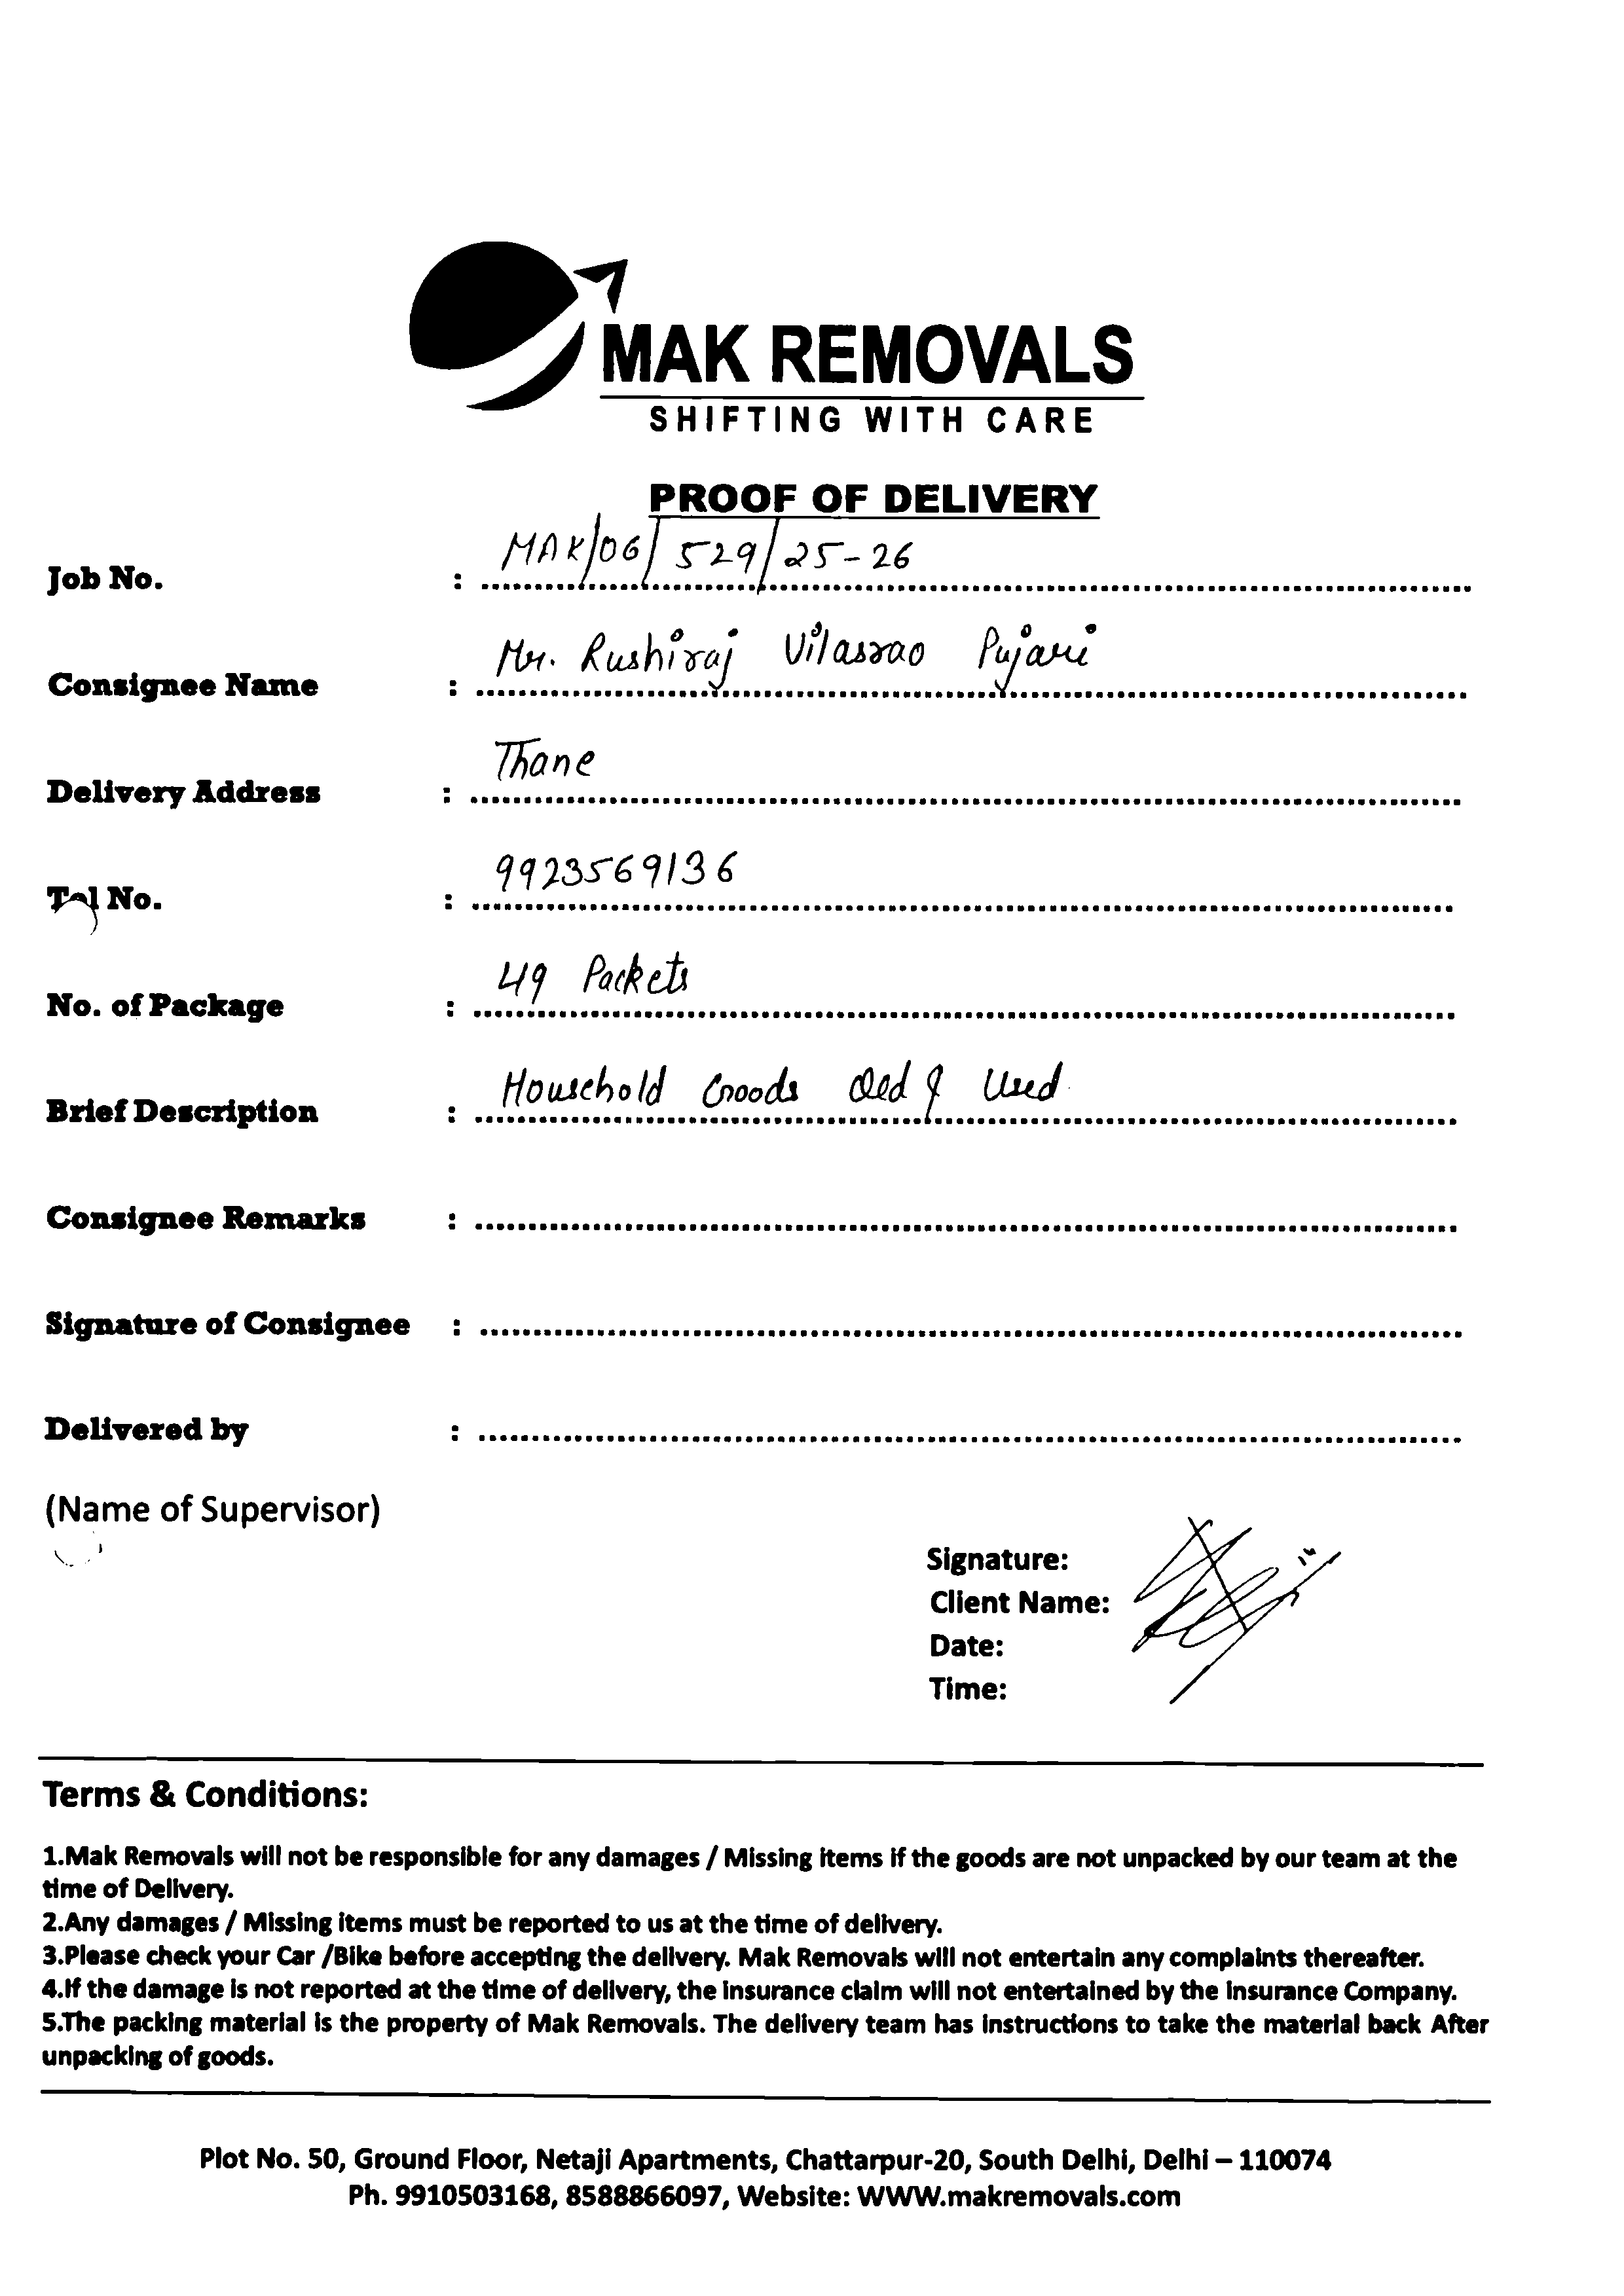 MAK REMOVALS
SHIFTING WITH CARE
PROOF OF DELIVERY
Job No. : MAK/06/529/25-26
Consignee Name : Mr. Rushiraj Vilasrao Pujari
Delivery Address : Thane
Tel No. : 9923569136
No. of Package : 49 Packets
Brief Description : Household Goods Old & Used
Consignee Remarks :
Signature of Consignee :
Delivered by :
(Name of Supervisor)
Signature:
Client Name:
Date:
Time:
Terms & Conditions:
1.Mak Removals will not be responsible for any damages / Missing items if the goods are not unpacked by our team at the
time of Delivery.
2.Any damages / Missing items must be reported to us at the time of delivery.
3.Please check your Car /Bike before accepting the delivery. Mak Removals will not entertain any complaints thereafter.
4.If the damage is not reported at the time of delivery, the insurance claim will not entertained by the Insurance Company.
5.The packing material is the property of Mak Removals. The delivery team has instructions to take the material back After
unpacking of goods.
Plot No. 50, Ground Floor, Netaji Apartments, Chattarpur-20, South Delhi, Delhi – 110074
Ph. 9910503168, 8588866097, Website: WWW.makremovals.com